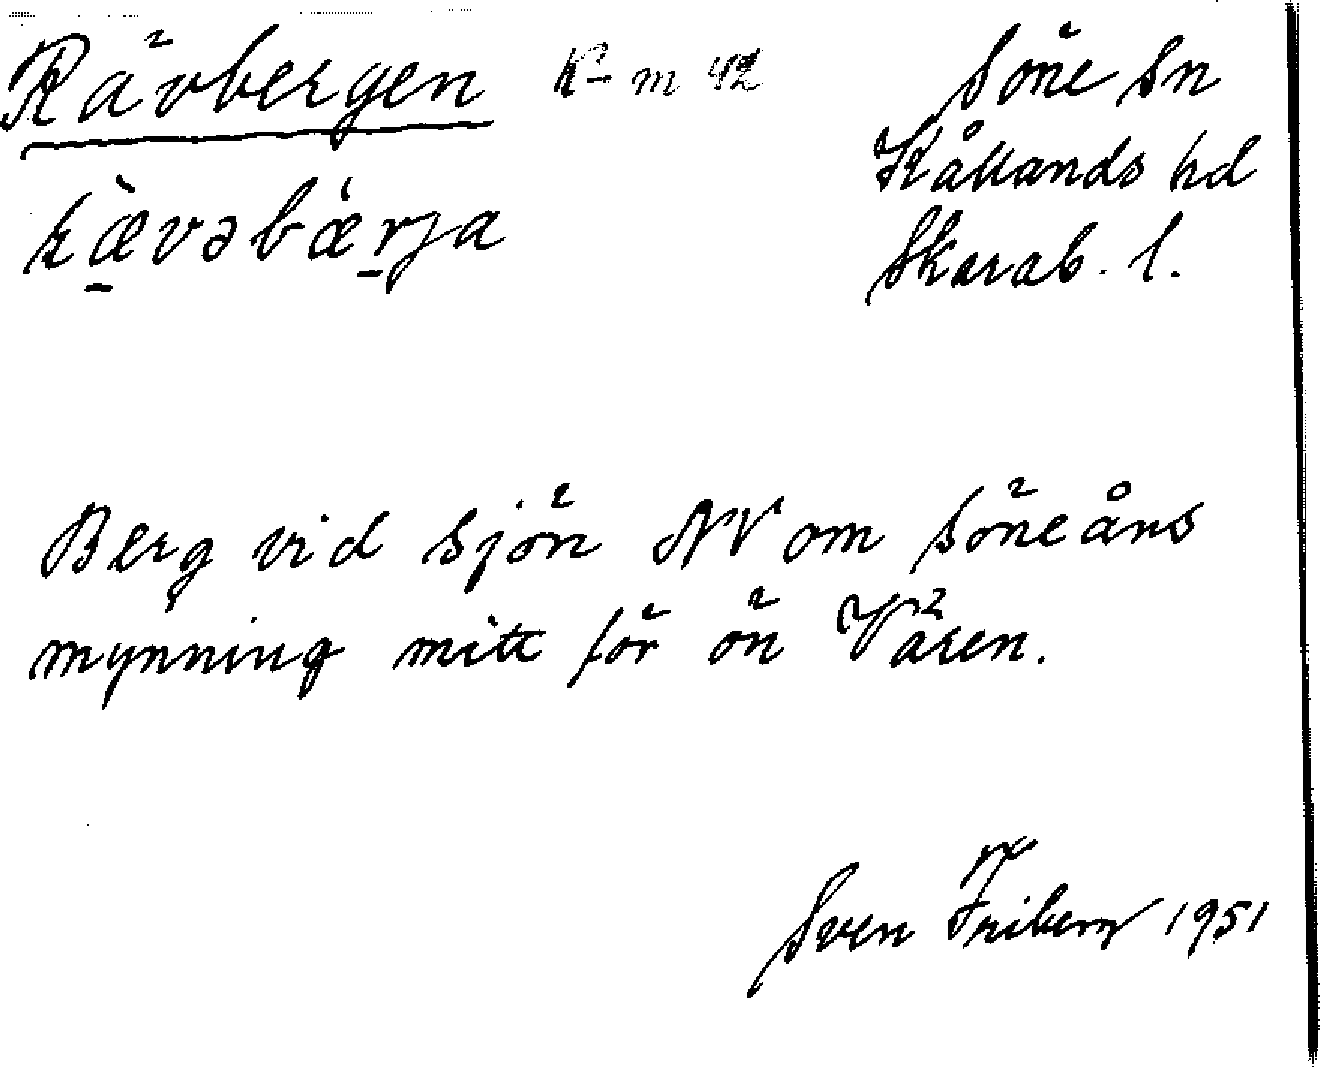 Rävbergen K-m 42
Söne sn
Kållands hd
Skarab. l.
ræ̀vəbǽrja
Berg vid sjön NV om Söneåns
mynning mitt för ön Våren.
Sven Friberg 1951